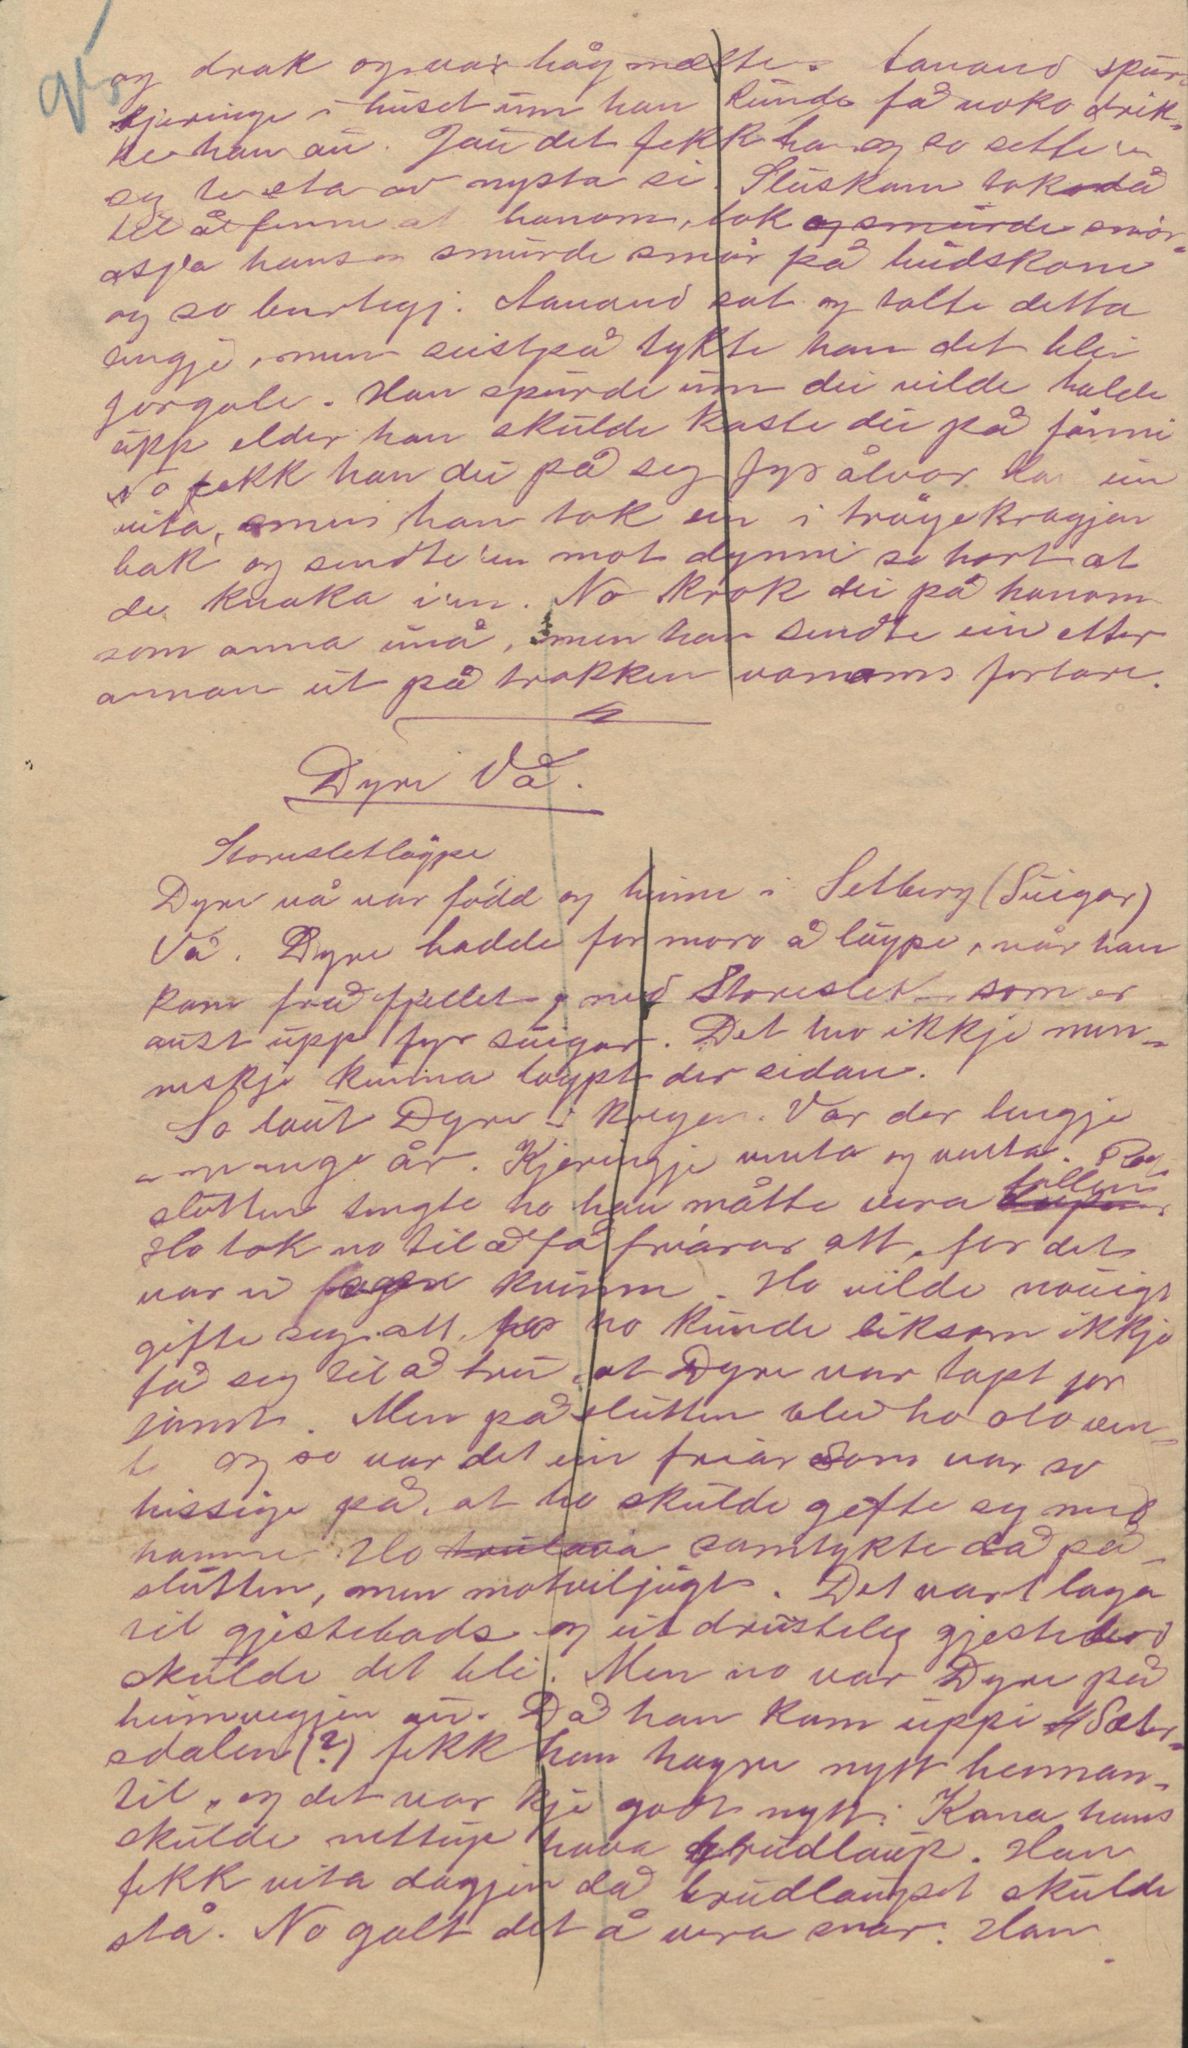 og drak og var hågmælte. Aanund spur-
kjeringe i huset um han kunde få noko drik-
ke han au. Jau det fekk han og so sette 'n
seg te eta av nysta si. Sluskane tok då
til å finne at honom, tok og smurde smør-
asja hans smurde smør på hudskone
og so burtegj. Aanund sat og tolte detta
lengje, men seistpå tykte han det blei
forgale. Han spurde um dei vilde halde
upp elder han skulde kaste dei på fånni
No fekk han dei på seg fyr ålvor. ein
vita, men han tok ein i trøyekragjen
bak og sendte 'en mot dynni so hart at
de knaka i 'en. No krok dei på honom
som anna må, men han sendte ein etter
annan ut på trakken fortare.
Dyre Vå.
Storesletløype
Dyre vå var född og heime i Selberg (Suigar)
Vå. Dyre hadde for moro å løype, når han
kom frå fjellet, ned Storeslet som er
aust upp fyr suigar. Det ikkje men-
neskje kunna løypt der sidan.
So laut Dyre i krigen. Var der lengje
mange år. Kjeringje venta og venta. På
slutten tengte ho han måtte vera fallen
Ho tok no til å få friarar att, for det
var ei fager kvinne. Ho vilde nauigt
gifte seg att, ho kunde liksom ikkje
få seg til å tru, at Dyre var tapt for
jamt. Men på slutten blei ho olo ven-
te og so var det ein friar som var so
hissige på, at ho skulde gifte seg med
honom. Ho trulova samtykte då på
slutten, men motviljugt. Det vart laga
til gjestebads og eit drusteleg gjestebod
skulde det bli. Men no var Dyre på
heimvegjen au. Då han kom uppi Sæter-
sdalen (?) fekk han høyre nytt henman-
til, og det var kje godt nytt: Kona hans
skulde nettupp hava brudlaup. Han
fekk vita dagjen då brudlaupet skulde
stå. No galt det å vera snar. Han